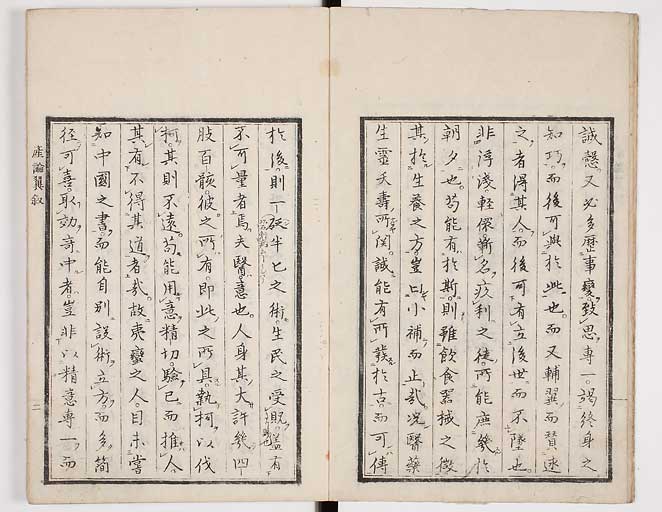 誠愨又必多歴事變致思專一竭終身之
知巧而後可與於此也而又輔翼而賛述
之者得其人而後可有立後世而不墜也
非浮淺輕儇釣名疾利之徒所能庶幾於
朝夕也苟能有於斯則雖飲食器械之微
其於生養之方豈曰小補而止哉况醫藥
生靈夭壽所関誠能有所發於古而可傳
於後則一破半匕之術生民之受賜有
不可量者焉夫醫意也人身其大許幾四
肢百骸彼之所有即此之所具執柯以伐
柯其則不遠苟能用意精切驗己而推人
其有不得其道者哉故夷蠻之人目未嘗
知中國之書而能自別設術立方而多簡
径可喜取効奇中者豈非以精意專一而
產論翼叙
二